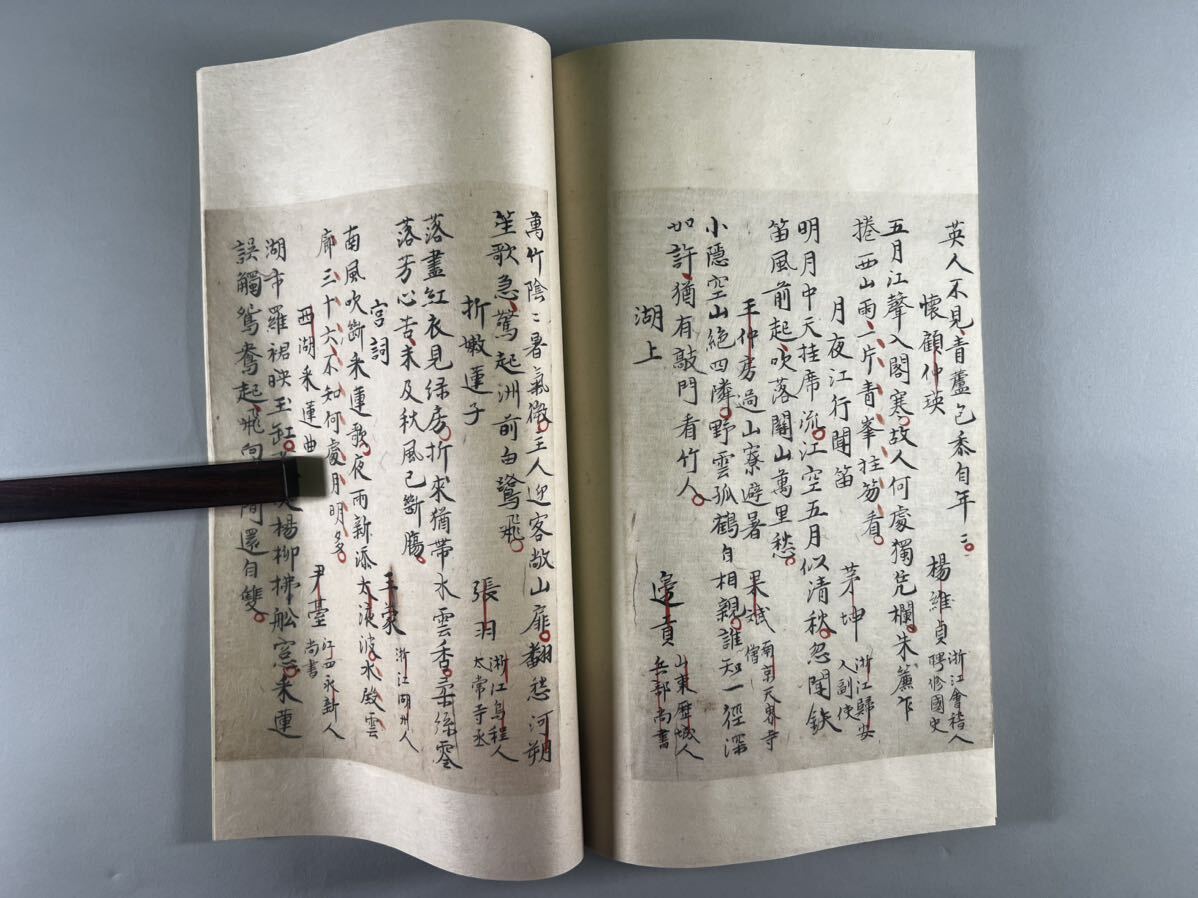 英人不見青蘆包黍自年〻
懷顧仲瑛 楊維貞 浙江會稽人聘修國史
五月江聲入閣寒故人何處獨凭欄朱簾乍
捲西山雨一片青峯拄笏看
月夜江行聞笛 茅坤 浙江歸安人副使
明月中天挂席流江空五月似清秋忽聞鉄
笛風前起吹落關山萬里愁
王仲房過山寮避暑 果斌 南京天界寺僧
小隱空山絕四隣野雲孤鶴自相親誰知一徑深
如許猶有敲門看竹人
湖上 邊貢 山東歷城人兵部尚書
萬竹陰〻暑氣微主人迎客敞山扉翻愁河朔
笙歌急驚起洲前白鷺飛
折嫩蓮子 張羽 浙江烏程人太常寺丞
落盡紅衣見绿房折來猶帶水雲香柔絲零
落芳心苦未及秋風已斷腸
宮詞 王蒙 浙江湖州人
南風吹斷采蓮歌夜雨新添太液波水殿雲
廊三十六不知何處月明多
西湖采蓮曲 尹臺 江西永新人尚書
湖市羅裙映玉缸楊柳拂船窓采蓮
誤觸鴛鴦起飛向間還自雙